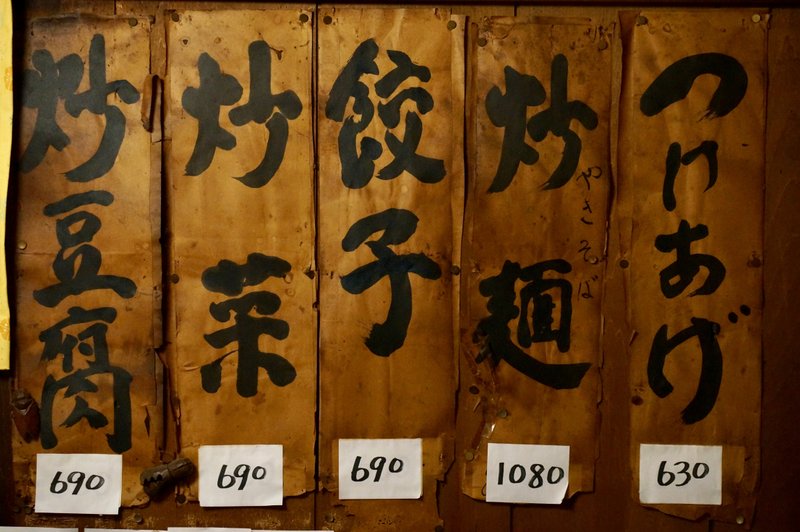 つけあげ
630
炒麺
やきそば
1080
餃子
690
炒菜
690
炒豆腐
690